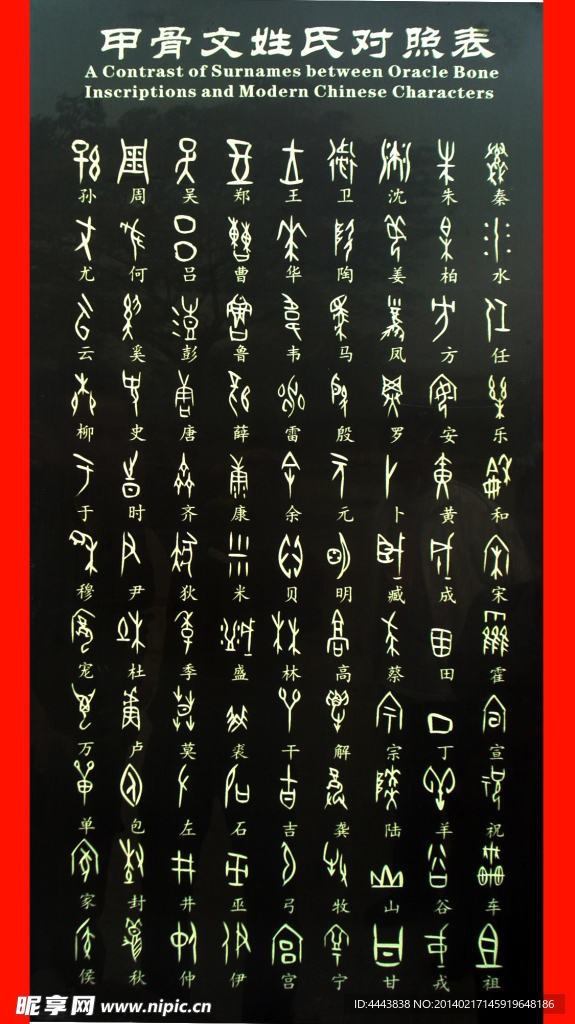 甲骨文姓氏对照表
A Contrast of Surnames between Oracle Bone
Inscriptions and Modern Chinese Characters
孙 周 吴 郑 王 卫 沈 朱 秦
尤 何 吕 曹 华 陶 姜 柏 水
云 奚 彭 鲁 韦 马 凤 方 任
柳 史 唐 薛 雷 殷 罗 安 乐
于 时 齐 康 余 元 卜 黄 和
穆 尹 狄 米 贝 明 臧 成 宋
宠 杜 季 盛 林 高 蔡 田 霍
万 卢 莫 裘 干 解 宗 丁 宣
单 包 左 石 吉 龚 陆 羊 祝
家 封 井 巫 弓 牧 山 谷 车
侯 秋 仲 伊 宫 宁 甘 戎 祖
昵享网 www.nipic.cn
ID:4443838 NO:20140217145919648186